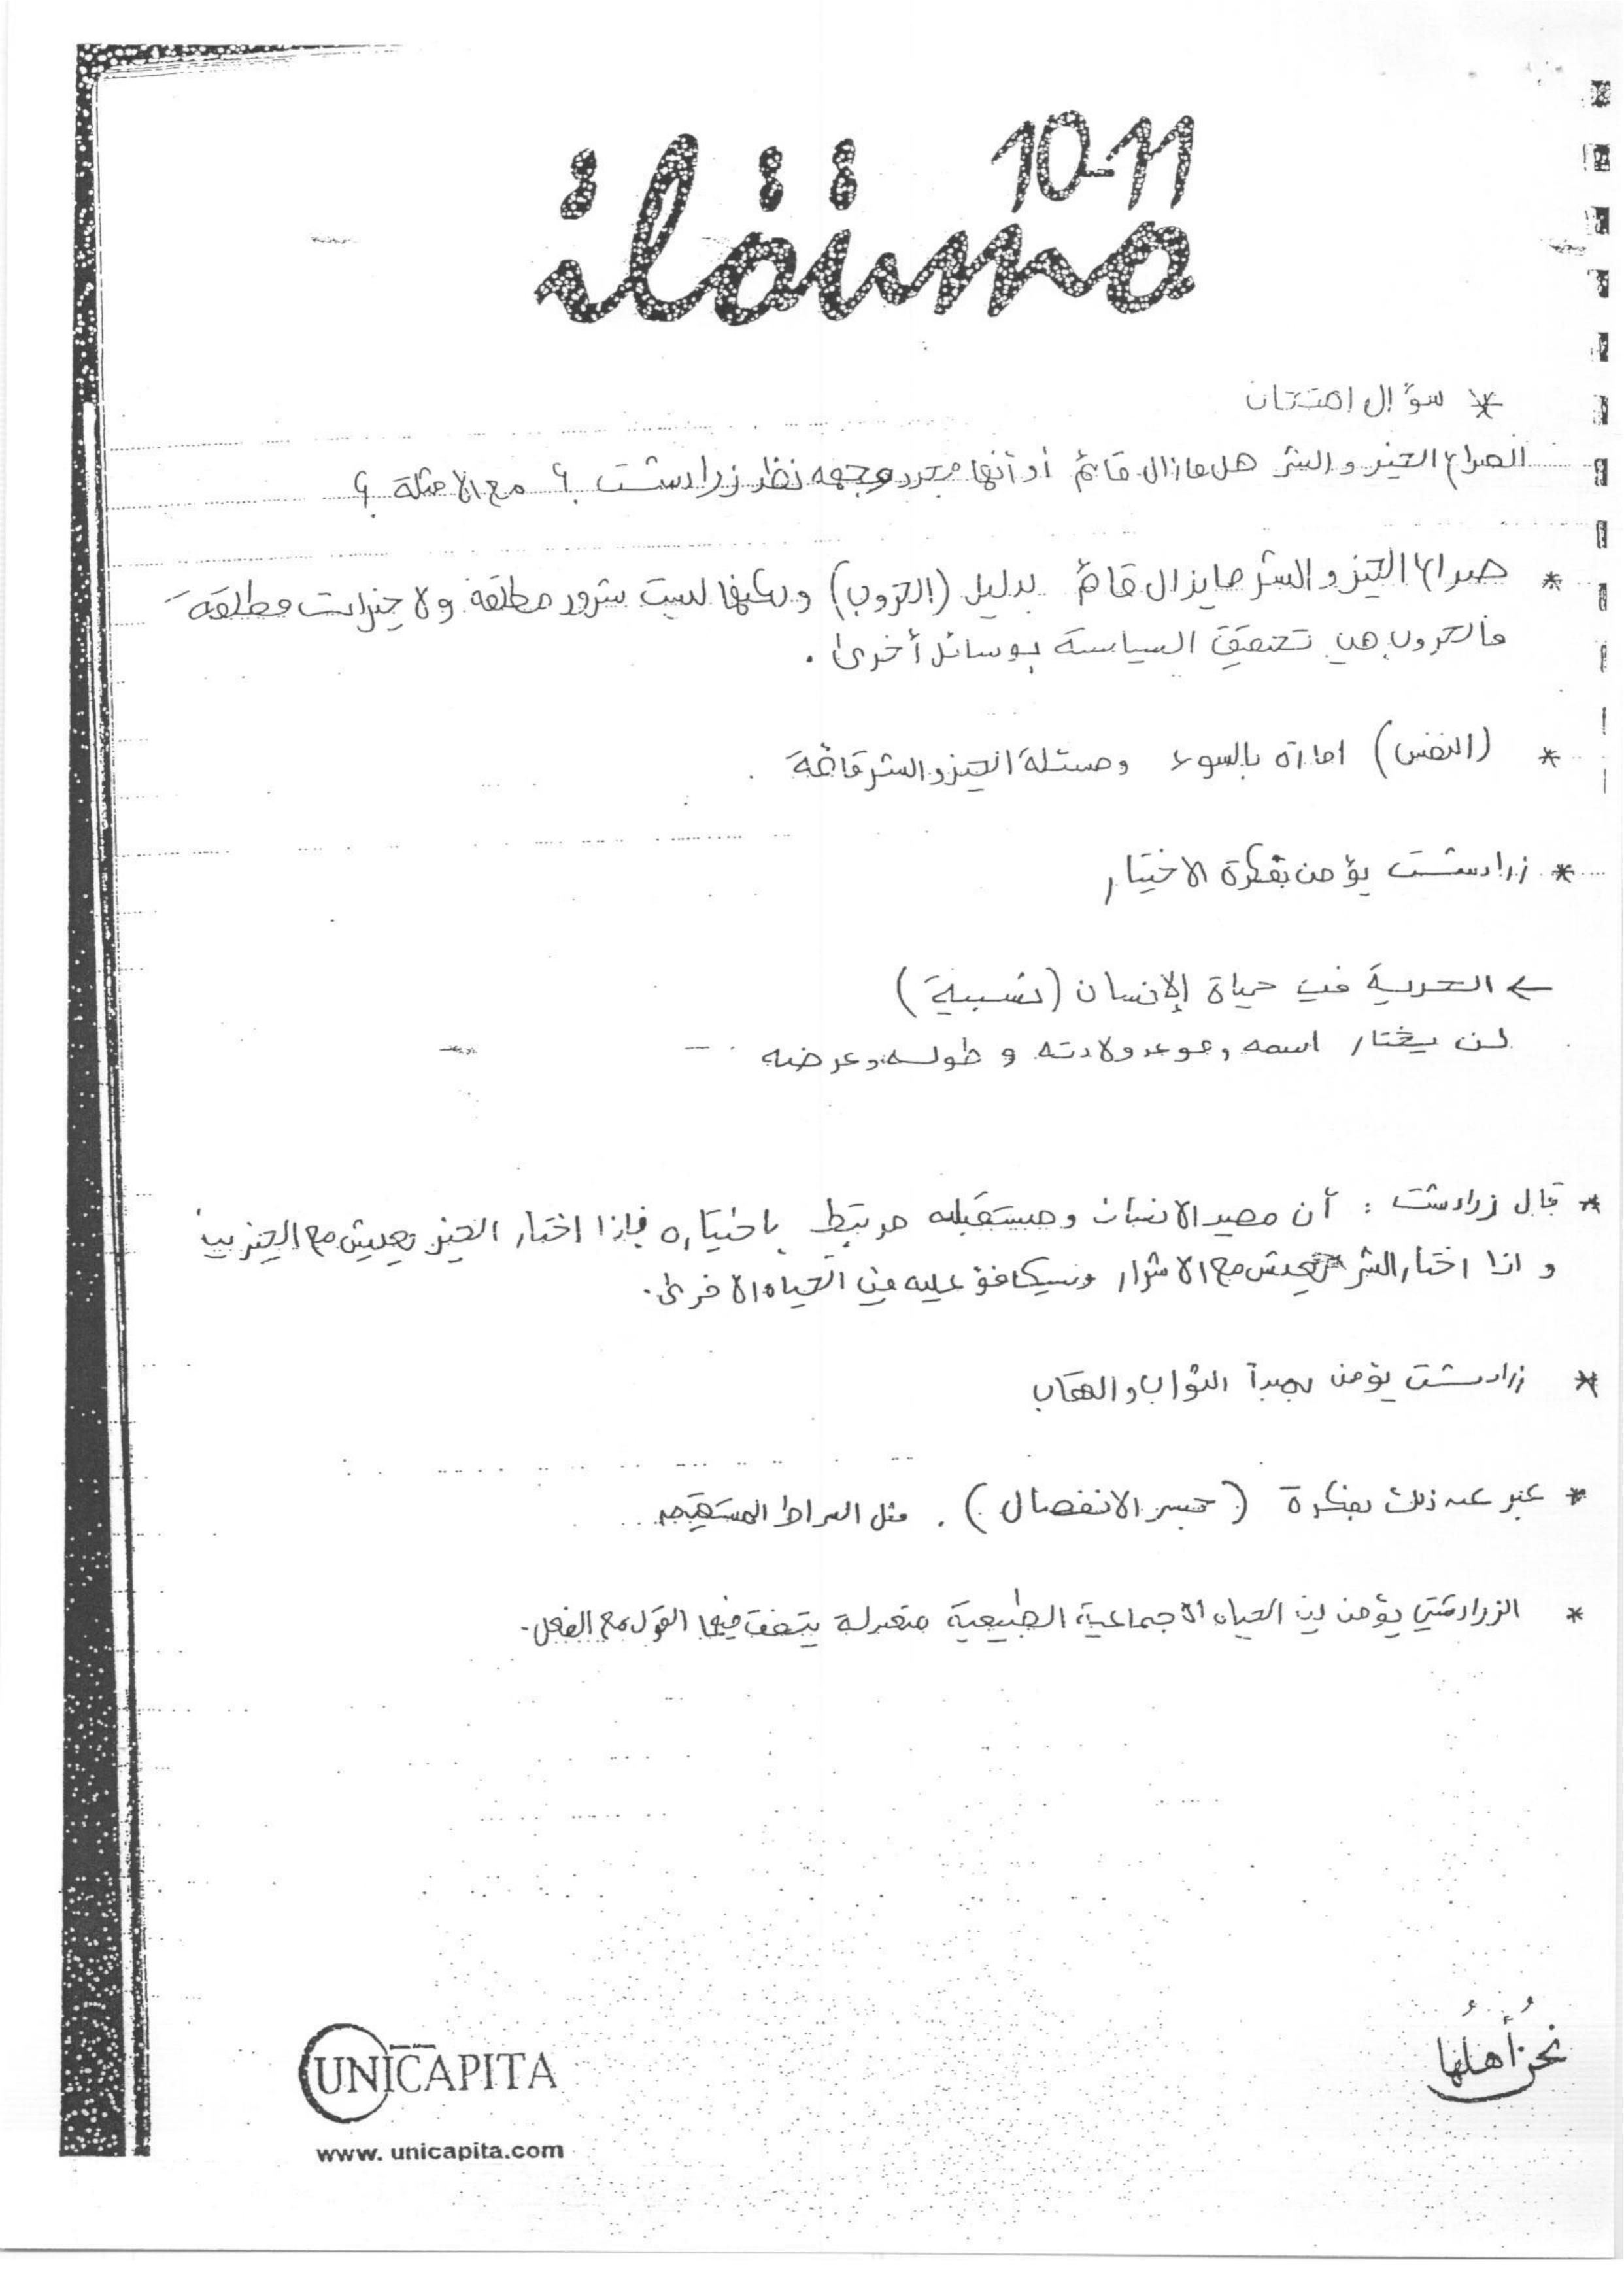 10-11
* سؤال امتحان
الصراع الخير والشر هل مازال قائم أو أنها مجرد وجهه نظر زرادشت ؟ مع الامثلة ؟
* صراع الخير والشر مايزال قائم بدليل (الحروب) ولكنها ليست شرور مطلقة ولا خيرات مطلقة
فالحروب هي تحقيق السياسة بوسائل أخرى .
* (النفس) امارة بالسوء ومسئلة الخير والشر قائمة .
* زرادشت يؤمن بفكرة الاختيار
← الحرية في حياة الإنسان (نسبية)
لن يختار اسمه وموعد ولادته و طوله وعرضه
* قال زرادشت : أن مصير الانسان ومستقبله مرتبط باختياره فإذا اختار الخير يعيش مع الخيرين
و اذا اختار الشر يعيش مع الاشرار وسيكافئ عليه في الحياه الاخرى .
* زرادشت يؤمن بمبدأ الثواب والعقاب
* عبر عن ذلك بفكرة (جسر الانفصال) . مثل الصراط المستقيم
* الزرادشتي يؤمن بان الحياه الاجماعية الطبيعية معتدلة يتفق فيها القول مع الفعل .
نحنُ أهلُها
UNICAPITA
www. unicapita.com